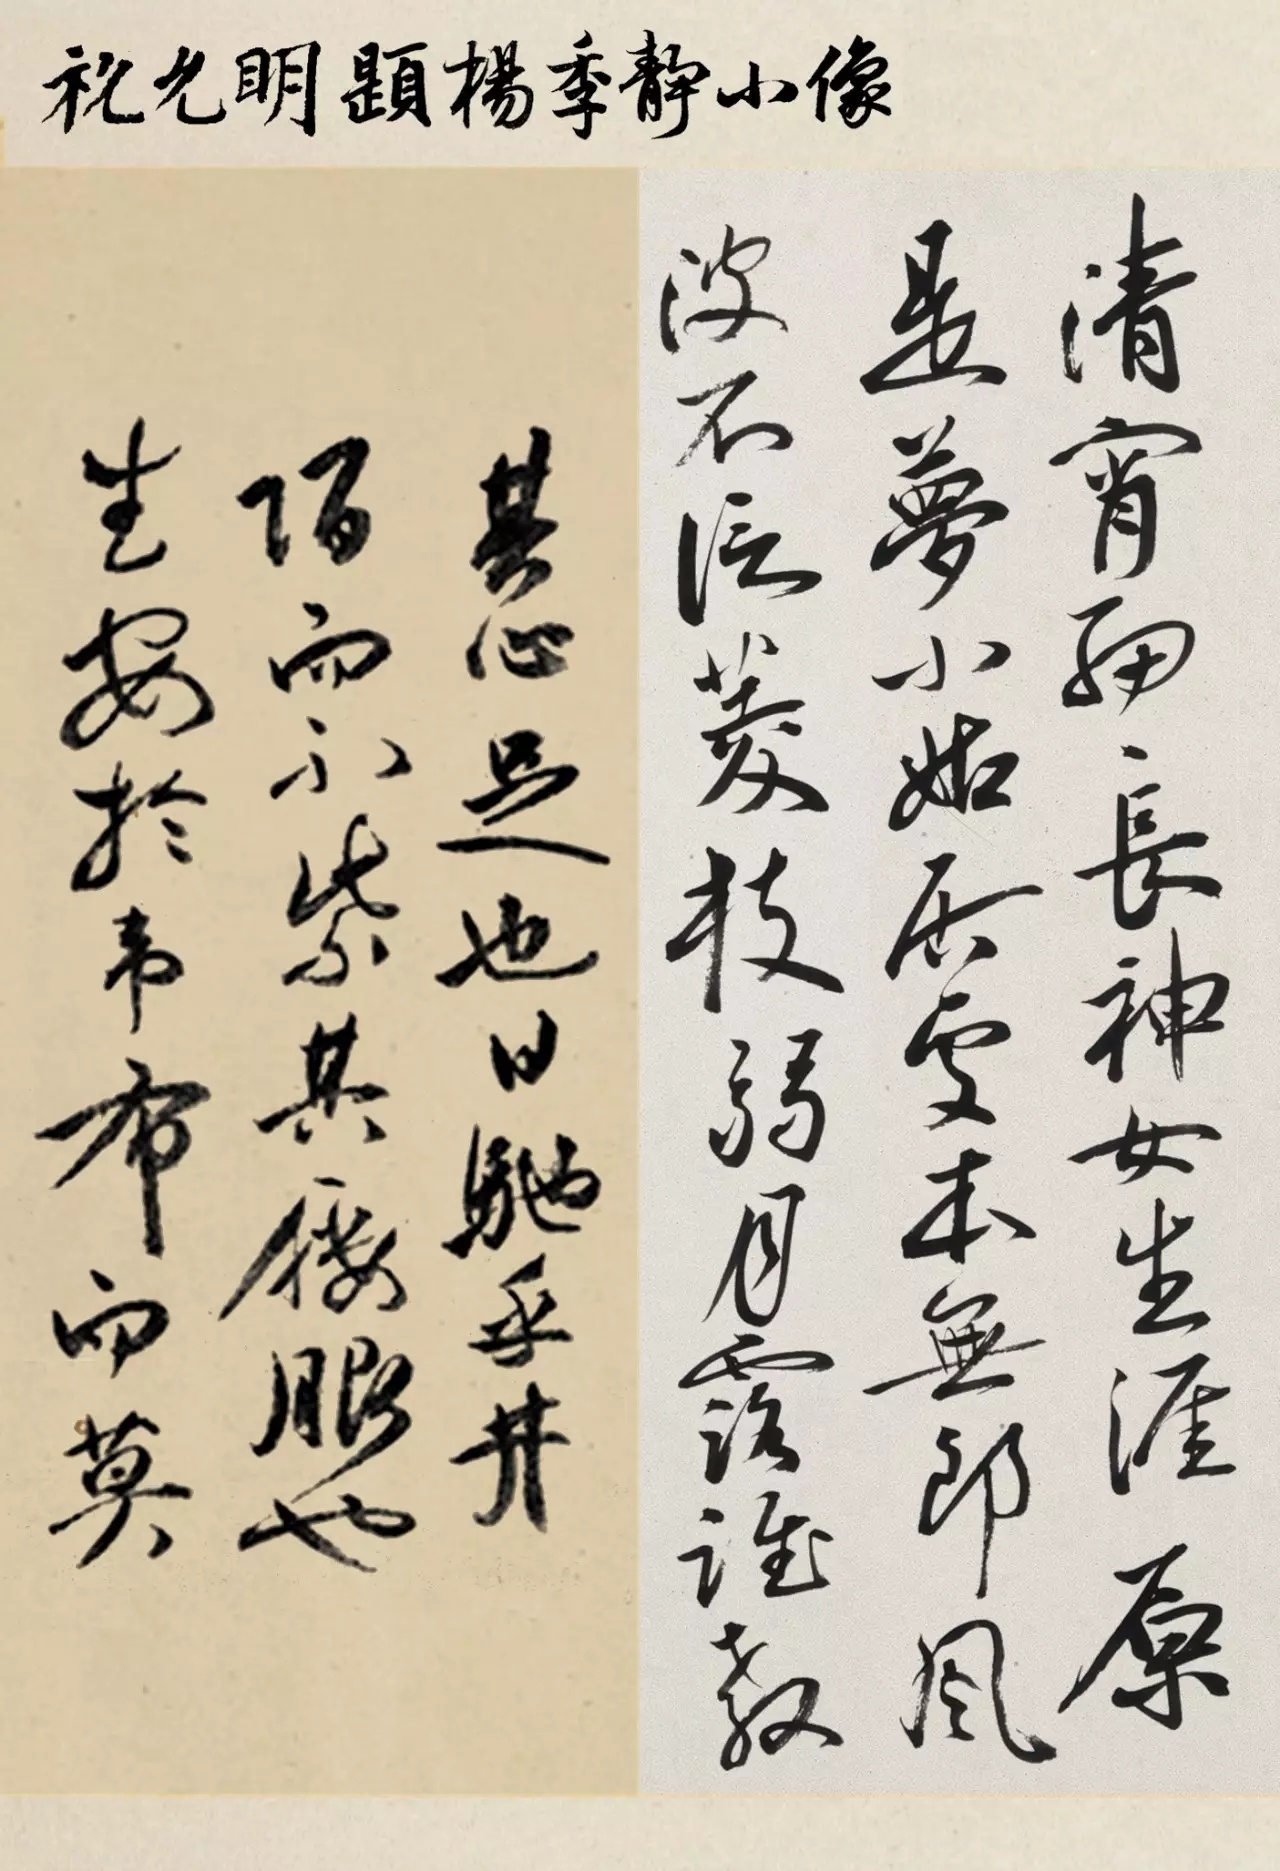 祝允明題楊季靜小像
清宵細長神女生涯原
是夢小姑居處本無郎風
波不信菱枝弱月露誰教
其心足也日馳乎井
陌而不紫其腰服也
生安於韋布而莫